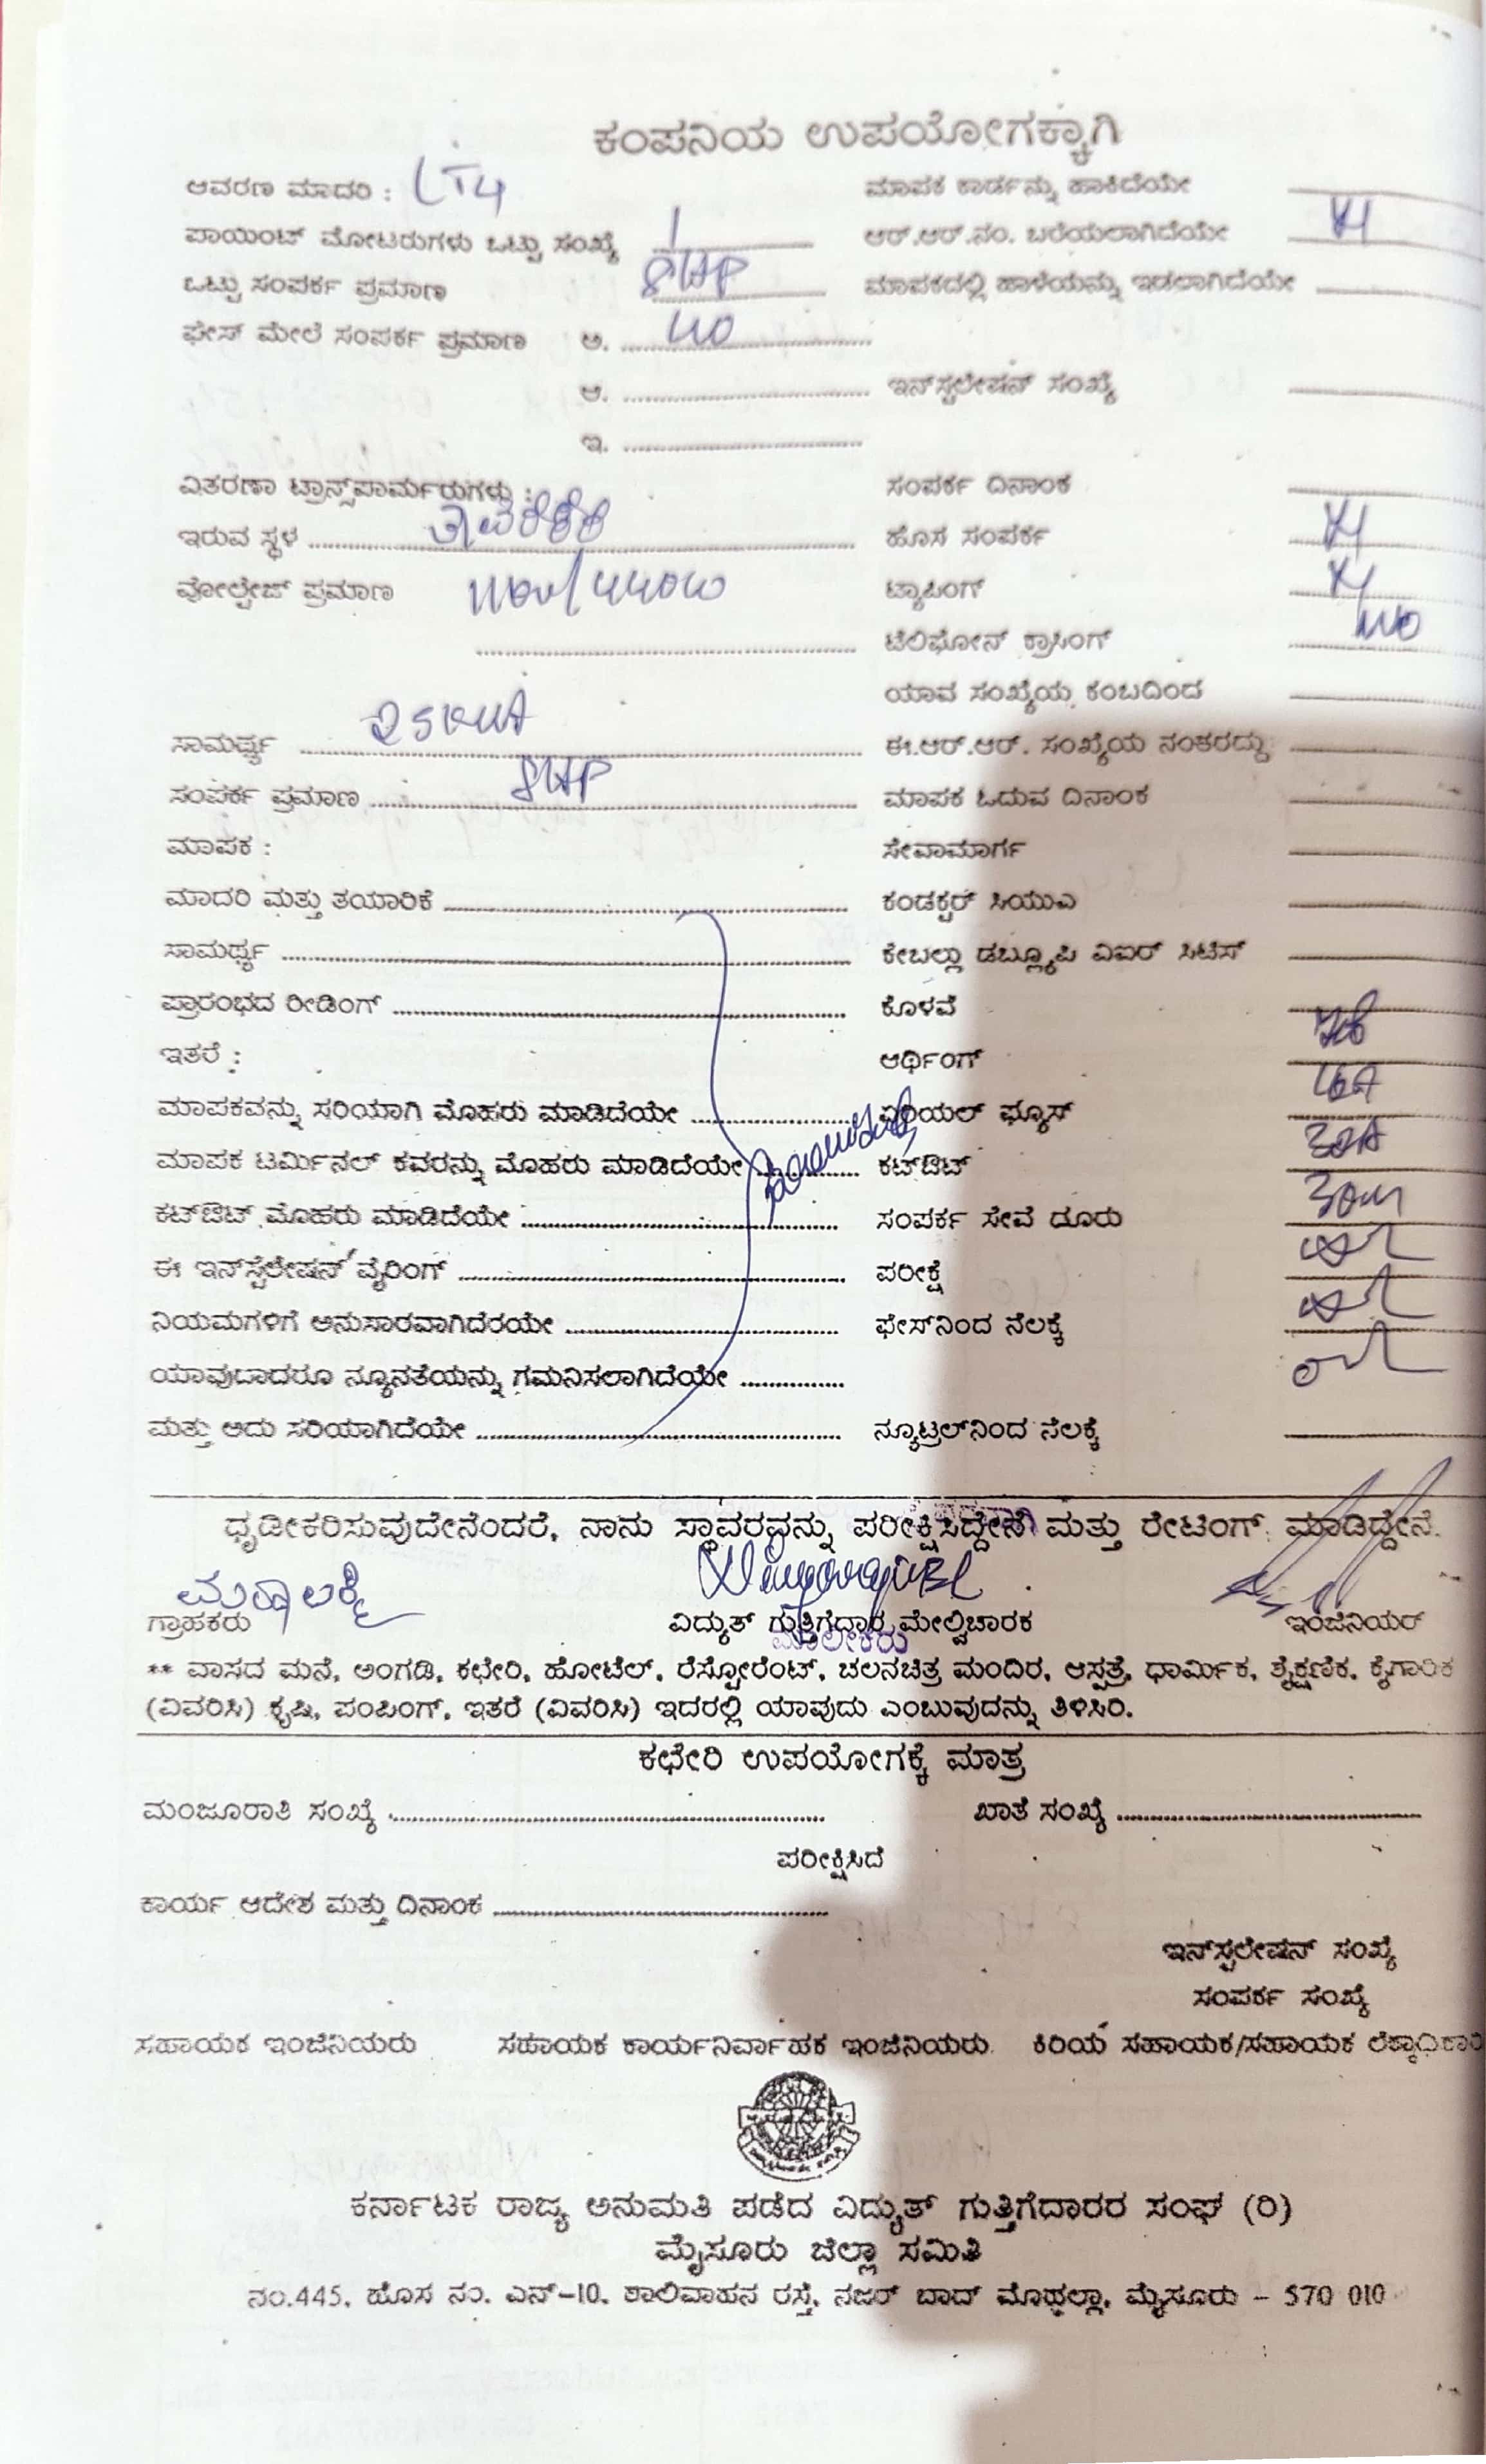 ಕಂಪನಿಯ ಉಪಯೋಗಕ್ಕಾಗಿ
ಆವರಣ ಮಾದರಿ : LT4 ಮಾಪಕ ಕಾರ್ಡನ್ನು ಹಾಕಿದೆಯೇ
ಪಾಯಿಂಟ್ ಮೋಟರುಗಳು ಒಟ್ಟು ಸಂಖ್ಯೆ 1 ಆರ್.ಆರ್.ನಂ. ಬರೆಯಲಾಗಿದೆಯೇ
ಒಟ್ಟು ಸಂಪರ್ಕ ಪ್ರಮಾಣ 8HP ಮಾಪಕದಲ್ಲಿ ಹಾಳೆಯನ್ನು ಇಡಲಾಗಿದೆಯೇ
ಫೇಸ್ ಮೇಲೆ ಸಂಪರ್ಕ ಪ್ರಮಾಣ ಅ.
ಆ. ಇನ್‌ಸ್ಟಲೇಷನ್ ಸಂಖ್ಯೆ
ಇ.
ವಿತರಣಾ ಟ್ರಾನ್ಸ್‌ಪಾರ್ಮರುಗಳು : ಸಂಪರ್ಕ ದಿನಾಂಕ
ಇರುವ ಸ್ಥಳ ಹೊಸ ಸಂಪರ್ಕ
ವೋಲ್ಟೇಜ್ ಪ್ರಮಾಣ ಟ್ಯಾಪಿಂಗ್
ಟೆಲಿಫೋನ್ ಕ್ರಾಸಿಂಗ್
ಯಾವ ಸಂಖ್ಯೆಯ ಕಂಬದಿಂದ
ಸಾಮರ್ಥ್ಯ 25KVA ಈ.ಆರ್.ಆರ್. ಸಂಖ್ಯೆಯ ನಂತರದ್ದು
ಸಂಪರ್ಕ ಪ್ರಮಾಣ 8HP ಮಾಪಕ ಓದುವ ದಿನಾಂಕ
ಮಾಪಕ : ಸೇವಾಮಾರ್ಗ
ಮಾದರಿ ಮತ್ತು ತಯಾರಿಕೆ ಕಂಡಕ್ಟರ್ ಸಿಯುಎ
ಸಾಮರ್ಥ್ಯ ಕೇಬಲ್ಲು ಡಬ್ಲ್ಯೂಪಿ ವಿಐರ್ ಸಿಟಿಸ್
ಪ್ರಾರಂಭದ ರೀಡಿಂಗ್ ಕೊಳವೆ
ಇತರೆ : ಆರ್ಥಿಂಗ್
ಮಾಪಕವನ್ನು ಸರಿಯಾಗಿ ಮೊಹರು ಮಾಡಿದೆಯೇ ಏರಿಯಲ್ ಫ್ಯೂಸ್
ಮಾಪಕ ಟರ್ಮಿನಲ್ ಕವರನ್ನು ಮೊಹರು ಮಾಡಿದೆಯೇ ಕಟ್‌ಔಟ್ 30A
ಕಟ್‌ಔಟ್ ಮೊಹರು ಮಾಡಿದೆಯೇ ಸಂಪರ್ಕ ಸೇವೆ ದೂರು 30m
ಈ ಇನ್‌ಸ್ಟೆಲೇಷನ್ ವೈರಿಂಗ್ ಪರೀಕ್ಷೆ
ನಿಯಮಗಳಿಗೆ ಅನುಸಾರವಾಗಿದೆರಯೇ ಫೇಸ್‌ನಿಂದ ನೆಲಕ್ಕೆ
ಯಾವುದಾದರೂ ನ್ಯೂನತೆಯನ್ನು ಗಮನಿಸಲಾಗಿದೆಯೇ
ಮತ್ತು ಅದು ಸರಿಯಾಗಿದೆಯೇ ನ್ಯೂಟ್ರಲ್‌ನಿಂದ ನೆಲಕ್ಕೆ
ಧೃಡೀಕರಿಸುವುದೇನೆಂದರೆ, ನಾನು ಸ್ಥಾವರವನ್ನು ಪರೀಕ್ಷಿಸಿದ್ದೇನೆ ಮತ್ತು ರೇಟಿಂಗ್ ಮಾಡಿದ್ದೇನೆ.
ಮಹಾಲಕ್ಷ್ಮಿ
ಗ್ರಾಹಕರು ವಿದ್ಯುತ್ ಗುತ್ತಿಗೆದಾರ ಮೇಲ್ವಿಚಾರಕ ಇಂಜಿನಿಯರ್
ಮಾಲೀಕರು
** ವಾಸದ ಮನೆ, ಅಂಗಡಿ, ಕಛೇರಿ, ಹೋಟೆಲ್, ರೆಸ್ಟೋರೆಂಟ್, ಚಲನಚಿತ್ರ ಮಂದಿರ, ಆಸ್ಪತ್ರೆ, ಧಾರ್ಮಿಕ, ಶೈಕ್ಷಣಿಕ, ಕೈಗಾರಿಕ
(ವಿವರಿಸಿ) ಕೃಷಿ, ಪಂಪಿಂಗ್, ಇತರೆ (ವಿವರಿಸಿ) ಇದರಲ್ಲಿ ಯಾವುದು ಎಂಬುವುದನ್ನು ತಿಳಿಸಿರಿ.
ಕಛೇರಿ ಉಪಯೋಗಕ್ಕೆ ಮಾತ್ರ
ಮಂಜೂರಾತಿ ಸಂಖ್ಯೆ ಖಾತೆ ಸಂಖ್ಯೆ
ಪರೀಕ್ಷಿಸಿದೆ
ಕಾರ್ಯ ಆದೇಶ ಮತ್ತು ದಿನಾಂಕ
ಇನ್‌ಸ್ಟಲೇಷನ್ ಸಂಖ್ಯೆ
ಸಂಪರ್ಕ ಸಂಖ್ಯೆ
ಸಹಾಯಕ ಇಂಜಿನಿಯರು ಸಹಾಯಕ ಕಾರ್ಯನಿರ್ವಾಹಕ ಇಂಜಿನಿಯರು ಕಿರಿಯ ಸಹಾಯಕ/ಸಹಾಯಕ
ಕರ್ನಾಟಕ ರಾಜ್ಯ ಅನುಮತಿ ಪಡೆದ ವಿದ್ಯುತ್ ಗುತ್ತಿಗೆದಾರರ ಸಂಘ (ರಿ)
ಮೈಸೂರು ಜಿಲ್ಲಾ ಸಮಿತಿ
ನಂ.445, ಹೊಸ ನಂ. ಎನ್-10, ಶಾಲಿವಾಹನ ರಸ್ತೆ, ನಜರ್ ಬಾದ್ ಮೊಹಲ್ಲಾ, ಮೈಸೂರು - 570 010